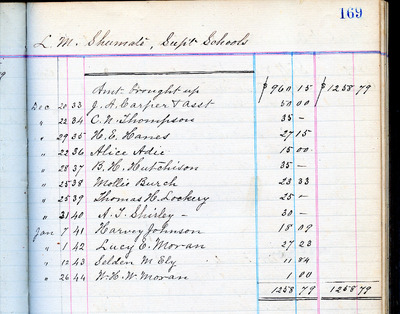 169
L. M. Shumate, Supt Schools
Amt. brought up $960 15 $1258 79
Dec 20 33 J. A. Carper & Asst 50 00
" 22 34 C. W. Thompson 35 —
" 29 35 H. E. Hanes 27 15
" 22 36 Alice Adie 15 00
" 28 37 B. H. Hutchison 35 —
" 25 38 Mollie Burch 23 33
" 25 39 Thomas H. Lockery 25 —
" 31 40 A. J. Shirley — 30 —
Jan 7 41 Harvey Johnson 18 09
" 1 42 Lucy E. Moran 27 23
" 12 43 Selden M Ely 11 84
" 26 44 W. H. W. Moran 1 00
1258 79 1258 79